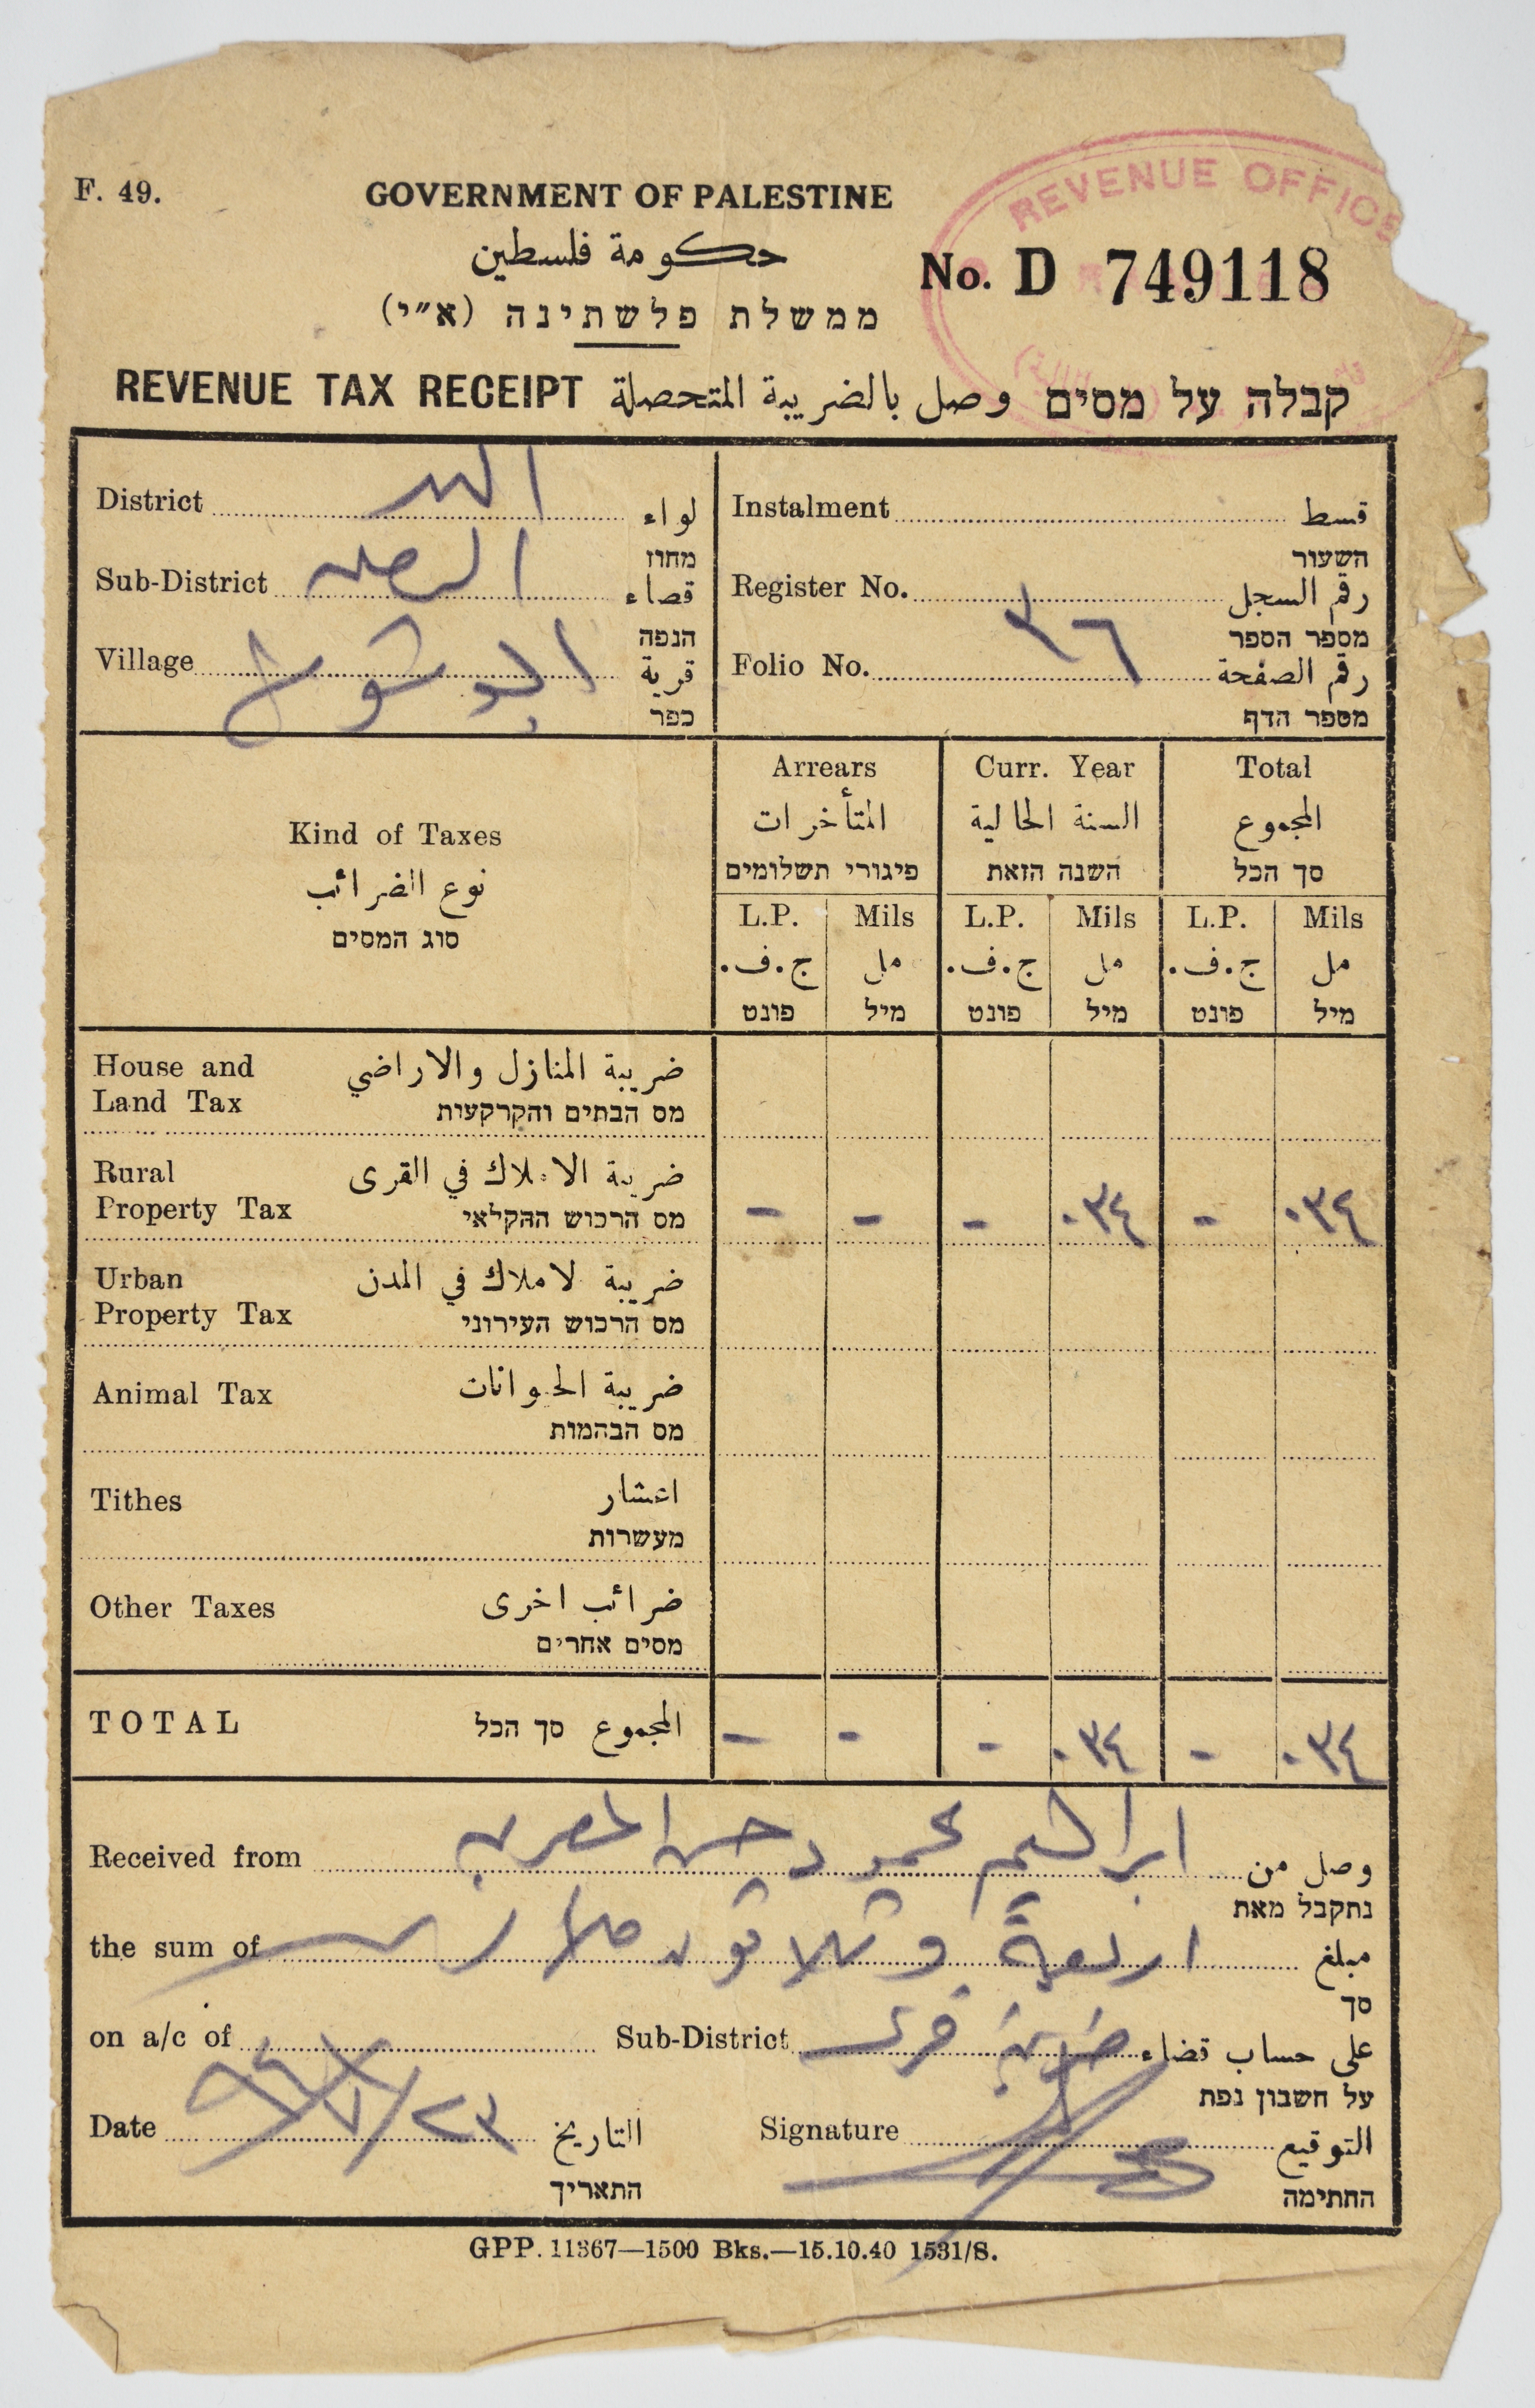 REVENUE OFFICE
F. 49.
GOVERNMENT OF PALESTINE
حكومة فلسطين
ממשלת פלשתינה (א״י)
No. D 749118
REVENUE TAX RECEIPT وصل بالضريبة المتحصلة קבלה על מסים
District اللد لواء
מחוז
Sub-District الرملة قضاء
הנפה
Village قرية
כפר
Instalment قسط
השעור
Register No. رقم السجل
מספר הספר
Folio No. ٣٦ رقم الصفحة
מספר הדף
Kind of Taxes
نوع الضرائب
סוג המסים
Arrears Curr. Year Total
المتأخرات السنة الحالية المجموع
פיגורי תשלומים השנה הזאת סך הכל
L.P. Mils L.P. Mils L.P. Mils
ج.ف. مل ج.ف. مل ج.ف. مل
פונט מיל פונט מיל פונט מיל
House and Land Tax ضريبة المنازل والاراضي
מס הבתים והקרקעות
Rural Property Tax ضريبة الاملاك في القرى
מס הרכוש החקלאי
- - - ٠٣٤ - ٠٣٤
Urban Property Tax ضريبة لاملاك في المدن
מס הרכוש העירוני
Animal Tax ضريبة الحيوانات
מס הבהמות
Tithes اعشار
מעשרות
Other Taxes ضرائب اخرى
מסים אחרים
TOTAL المجموع סך הכל - - - ٠٣٤ - ٠٣٤
Received from ابراهيم محمد وحسن المصري وصل من
נתקבל מאת
the sum of اربعة وثلاثون ملا مبلغ
סך
on a/c of Sub-District ضريبة قرى على حساب قضاء
על חשבון נפת
Date التاريخ
התאריך
Signature التوقيع
החתימה
GPP. 11367—1500 Bks.—15.10.40 1531/S.